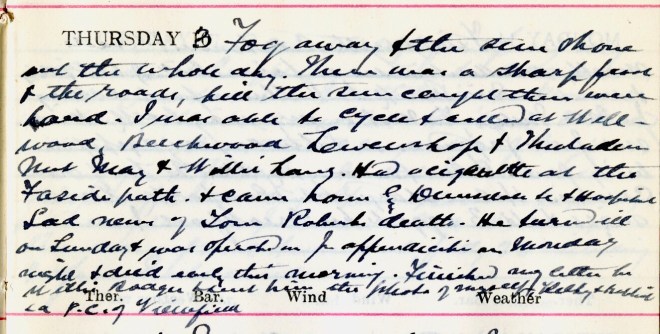 THURSDAY 13 Fog away & the sun shone
out the whole day. There was a sharp frost
& the roads, till the sun caught them were
hard. I was able to cycle & called at Well-
wood, Beechwood &
Met May & Willie Lang. Had a cigarette at the
path. & came home by & Hospital
Sad news of Tom Roberts death. He turned ill
on Sunday & was operated on for appendicitis on Monday
night & died early this morning. Finished my letter to
Willie Rodger & sent him the photo of myself,
Ther. Bar. Wind Weather
in P.C. of Viewfield